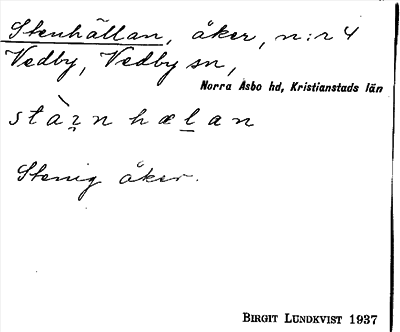 Stenhällan, åker, n:r 4
Vedby, Vedby sn,
Norra Åsbo hd, Kristianstads län
hælan
Stenig åker.
BIRGIT LUNDKVIST 1937